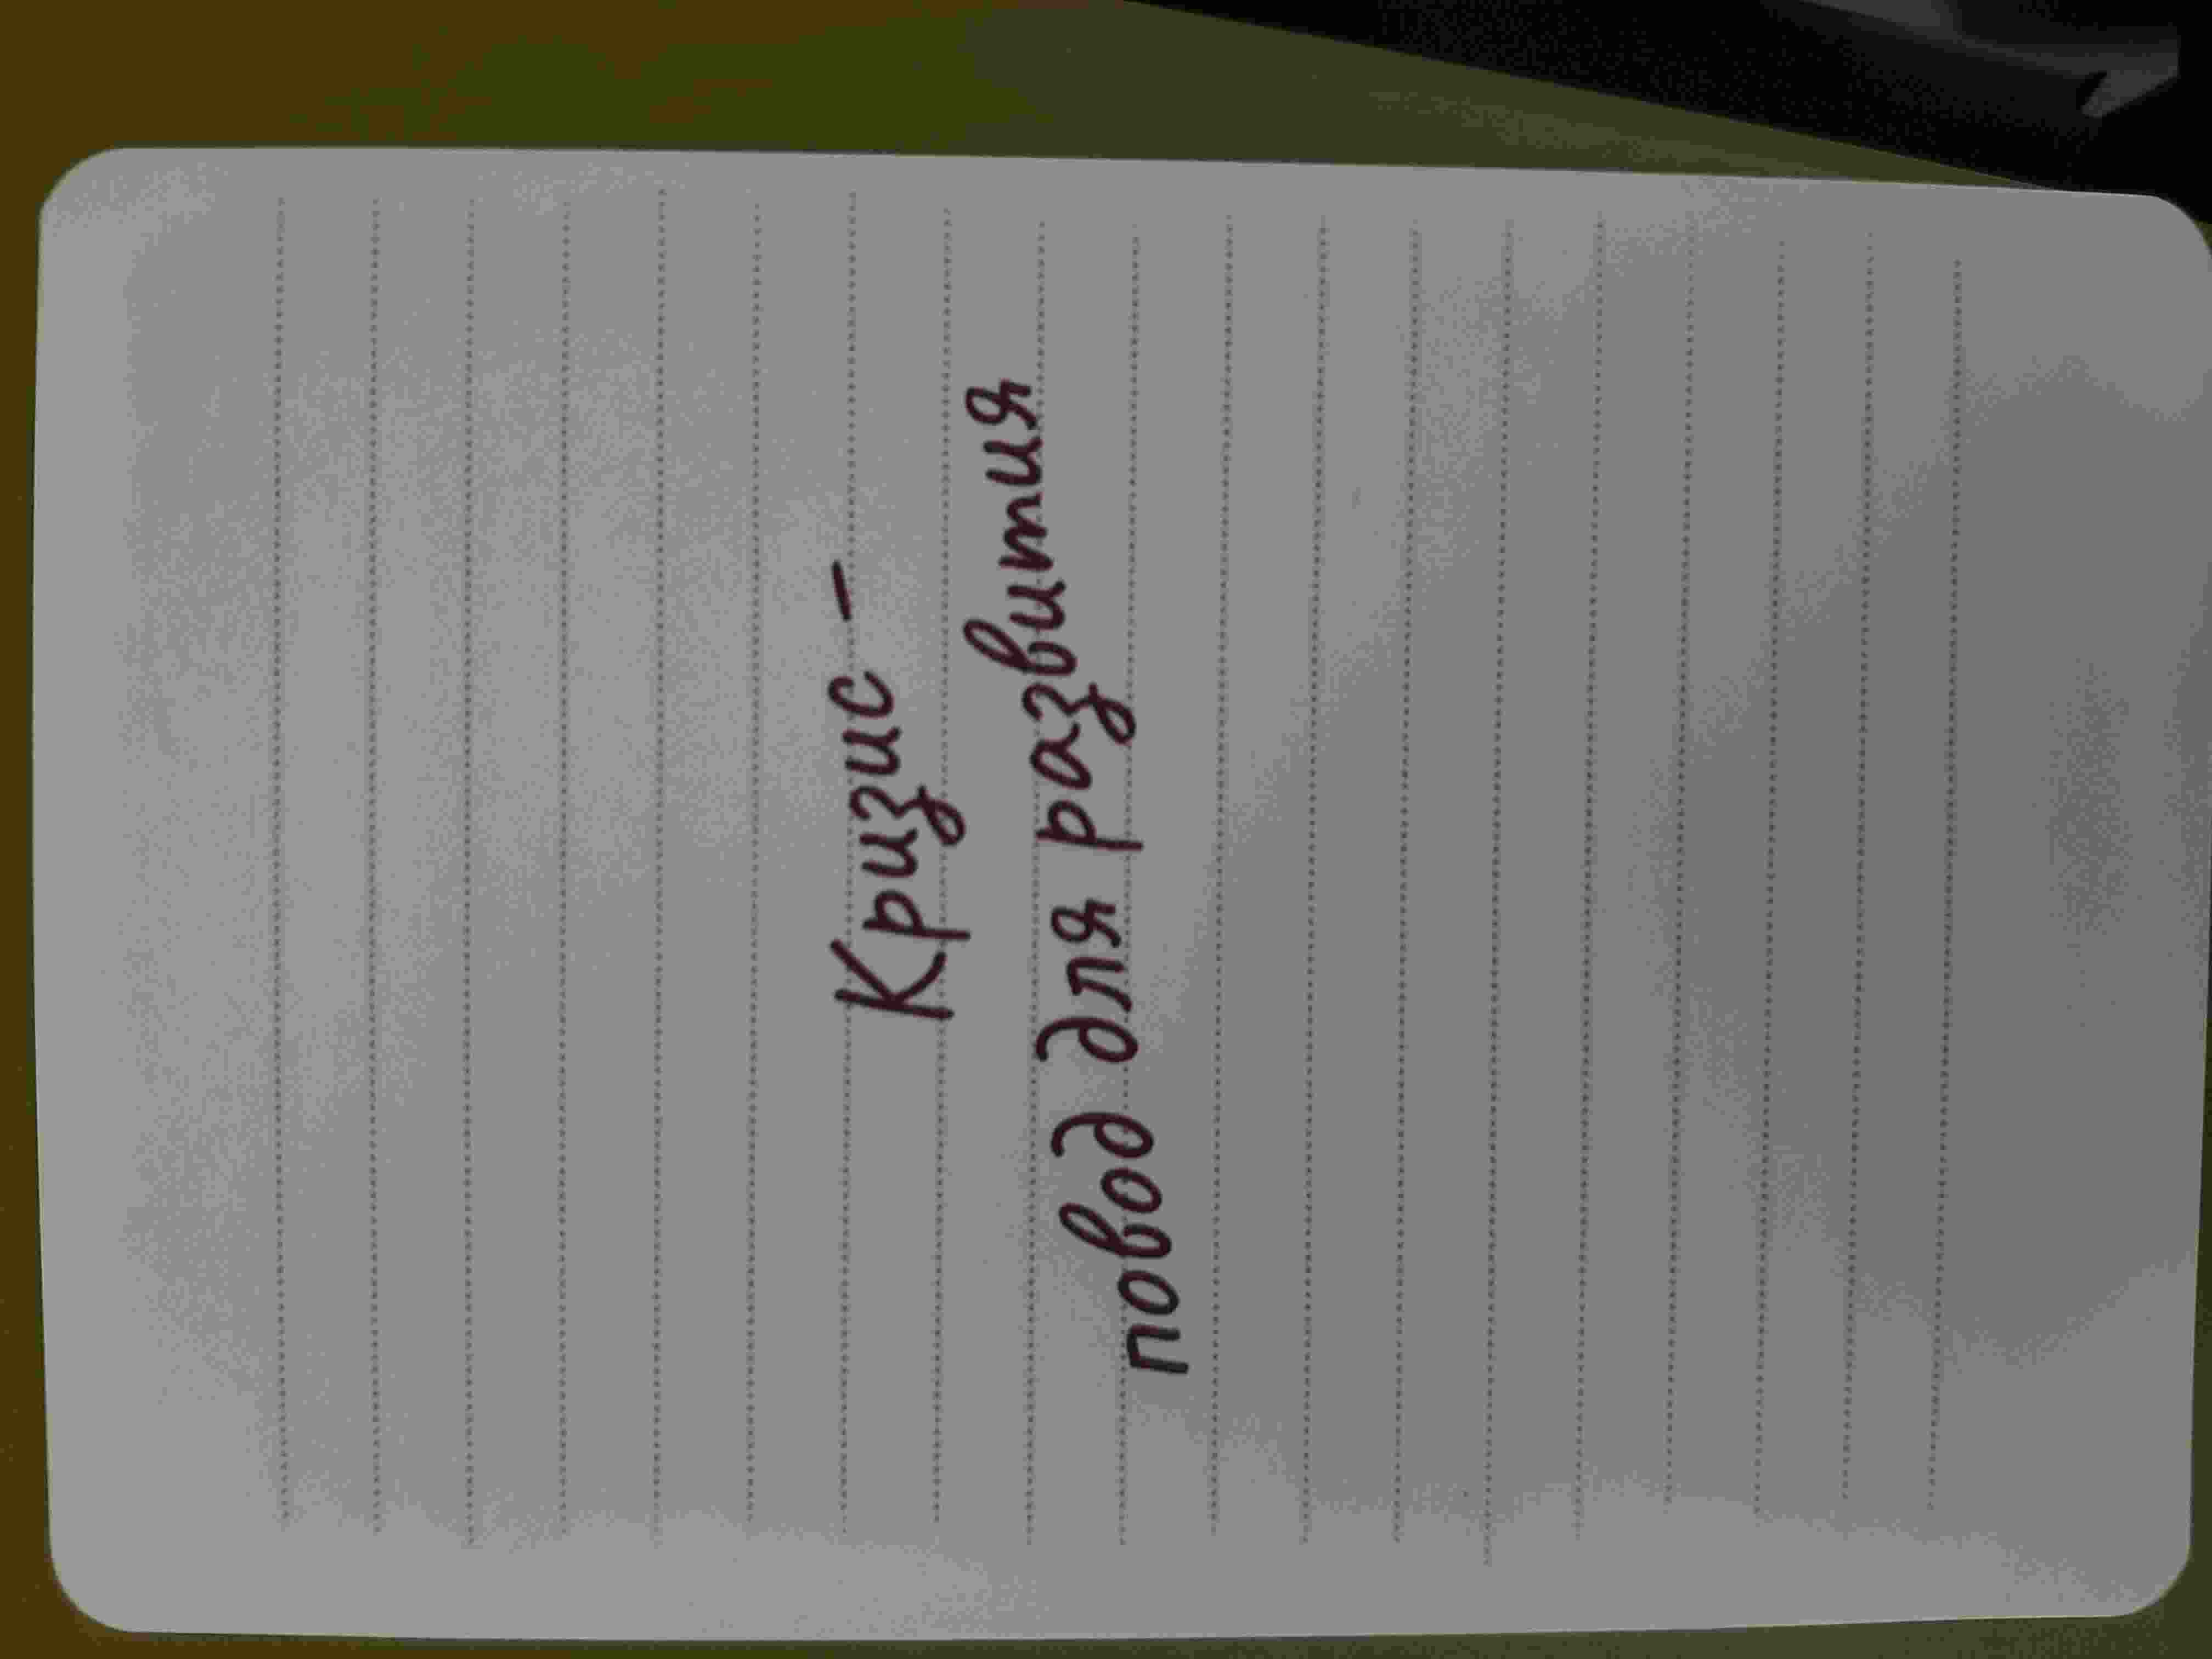 Кризис –
повод для развития